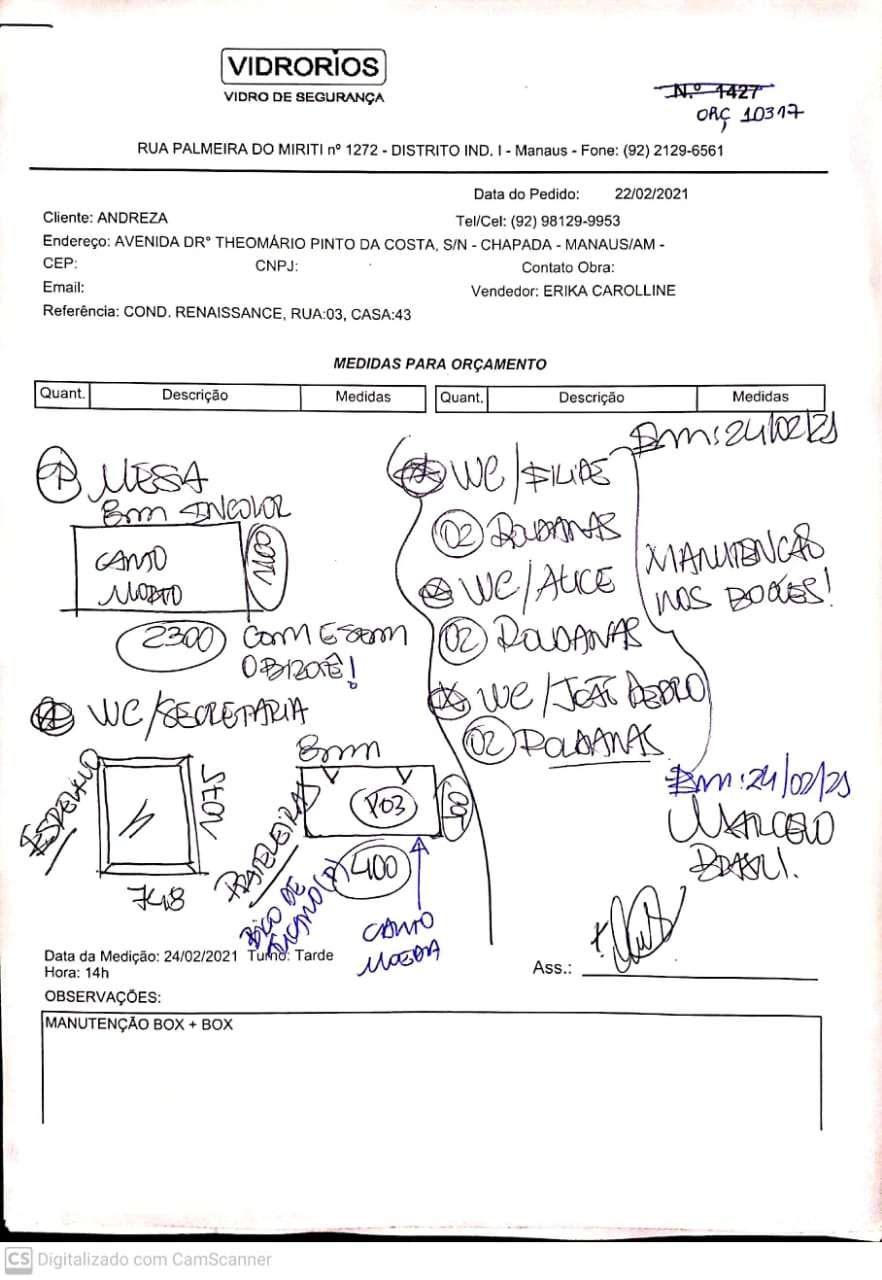 VIDRORIOS
VIDRO DE SEGURANÇA
N.º 1427
ORÇ 10317
RUA PALMEIRA DO MIRITI nº 1272 - DISTRITO IND. I - Manaus - Fone: (92) 2129-6561
Data do Pedido: 22/02/2021
Cliente: ANDREZA
Tel/Cel: (92) 98129-9953
Endereço: AVENIDA DRº THEOMÁRIO PINTO DA COSTA, S/N - CHAPADA - MANAUS/AM -
CEP: CNPJ: Contato Obra:
Email:
Vendedor: ERIKA CAROLLINE
Referência: COND. RENAISSANCE, RUA:03, CASA:43
MEDIDAS PARA ORÇAMENTO
Quant. Descrição Medidas Quant. Descrição Medidas
MESA
8mm INCOLOR
CANTO
MORTO
1100
2300 COM E SEM
O BIZOTÊ!
WC/SECRETARIA
ESPELHO
748
8mm
PRATELEIRAS
P03
400
BICO DE
TUCANO
CANTO
MOEDA
Em: 24/02/21
WC/
02 ROLDANAS
WC/ALICE
02 ROLDANAS
WC/JOÃO PEDRO
02 ROLDANAS
MANUTENCÃO
NOS BOXES!
Em: 24/02/21
MARCELO
BRASIL.
Data da Medição: 24/02/2021 Turno: Tarde
Hora: 14h
Ass.:
OBSERVAÇÕES:
MANUTENÇÃO BOX + BOX
CS Digitalizado com CamScanner